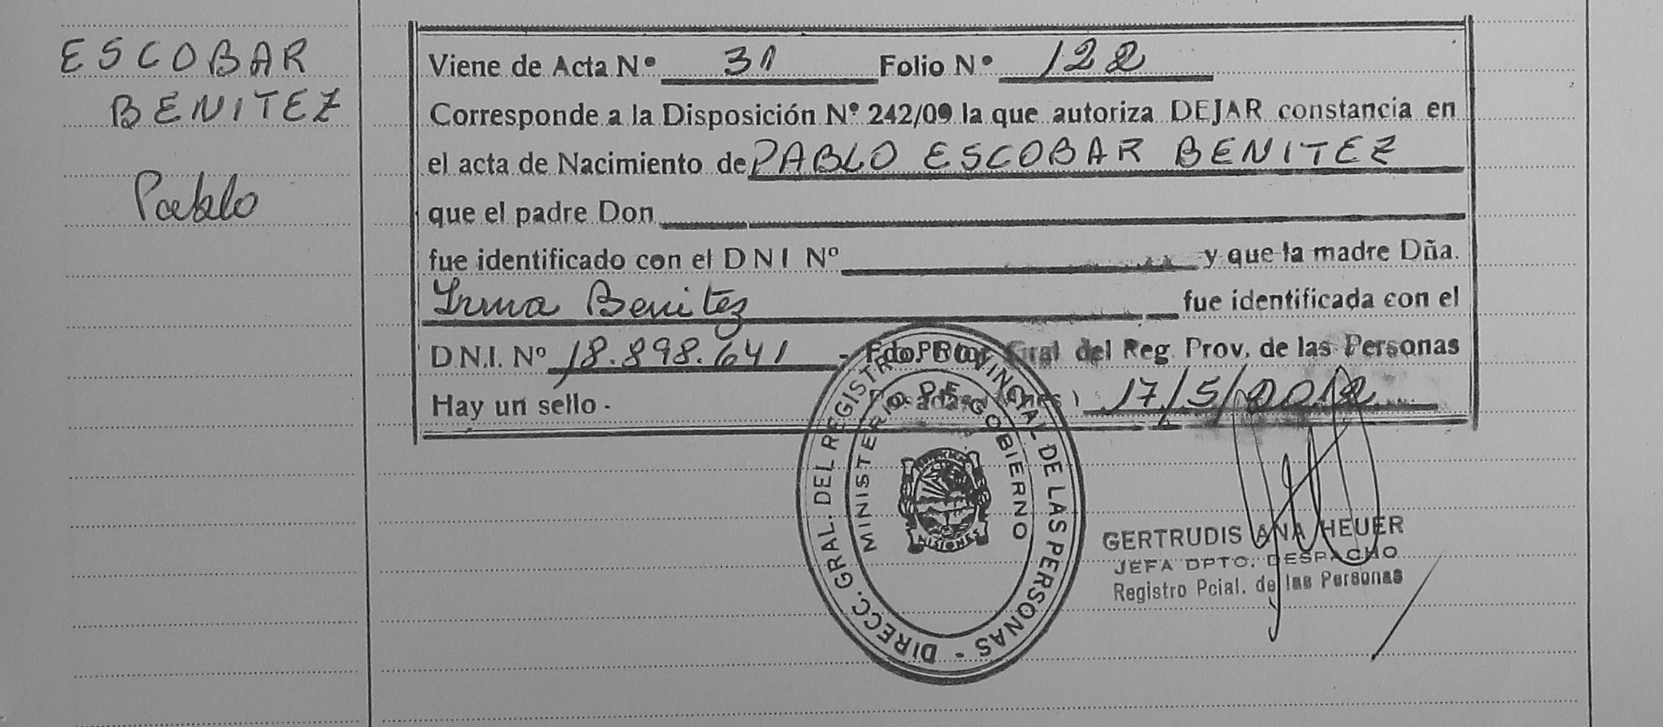 ESCOBAR
BENITEZ
Pablo
Viene de Acta Nº 31 Folio Nº 122
Corresponde a la Disposición Nº 242/09 la que autoriza DEJAR constancia en
el acta de Nacimiento de PABLO ESCOBAR BENITEZ
que el padre Don
fue identificado con el DNI Nº y que la madre Dña.
Irma Benitez fue identificada con el
D.N.I. Nº 18.898.641 - Fdo. Gral del Reg. Prov. de las Personas
Hay un sello - 17/5/2012
DIRECC. GRAL. DEL REGISTRO PROVINCIAL DE LAS PERSONAS -
MINISTERIO DE GOBIERNO
MISIONES
GERTRUDIS ANA HEUER
JEFA DPTO. DESPACHO
Registro Pcial. de las Personas